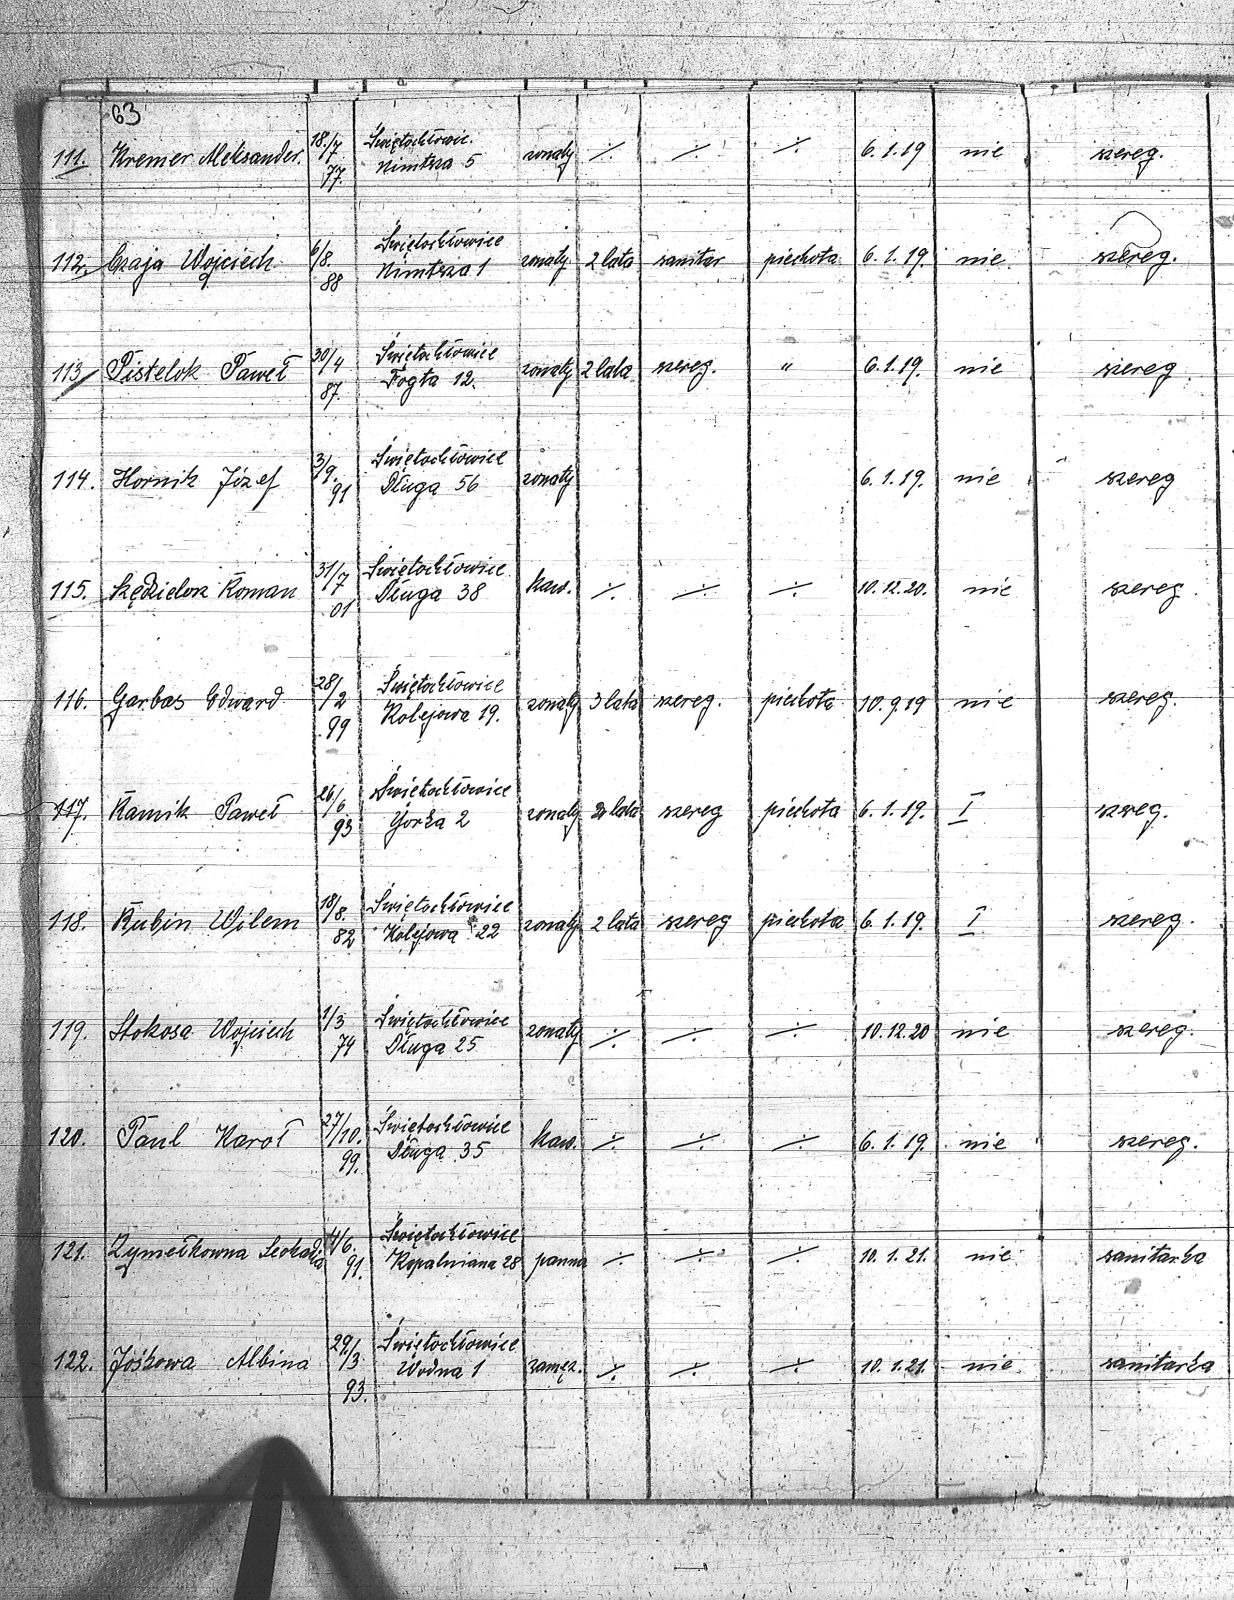 63
111. Kremer Aleksander. 18./7 77. Świętochłowic. Nimtza 5 żonaty ·/· ·/· ·/· 6.1.19 nie szereg.
112. Czaja Wojciech 6/8. 88 Świętochłowice Nimtza 1 żonaty 2 lata sanitar piechota 6.1.19. nie szereg.
113. Pistelok Paweł 30/4 87. Świętochłowice Fogta 12. żonaty 2 lata szereg. " 6.1.19. nie szereg
114. Hornik Józef 3/9. 91 Świętochłowice Długa 56 żonaty 6.1.19. nie szereg
115. Kędzielor Roman 31/7 01 Świętochłowice Długa 38 kaw. ·/· ·/· ·/· 10.12.20. nie szereg
116. Garbas Edward 28/2 99 Świętochłowice Kolejowa 19. żonaty 3 lata szereg. piechota 10.9.19 nie szereg.
117. Kamik Paweł 26/6 93 Świętochłowice Górka 2 żonaty 2 lata szereg piechota 6.1.19. I szereg.
118. Rubin Wilem 18/8. 82 Świętochłowice Kolejowa 22 żonaty 2 lata szereg piechota 6.1.19. I szereg.
119. Stokosa Wojciech 1/3 74 Świętochłowice Długa 25 żonaty ·/· ·/· ·/· 10.12.20 nie szereg.
120. Paul Karol 27/10. 99. Świętochłowice Długa 35 kaw. ·/· ·/· ·/· 6.1.19. nie szereg.
121. Zymełkowna Leokadia 4/6. 91. Świętochłowice Kopalniana 28 panna ·/· ·/· ·/· 10.1.21. nie sanitarka
122. Jośkowa Albina 29/3 93. Świętochłowice Wodna 1 zamęż. ·/· ·/· ·/· 10.1.21. nie sanitarka